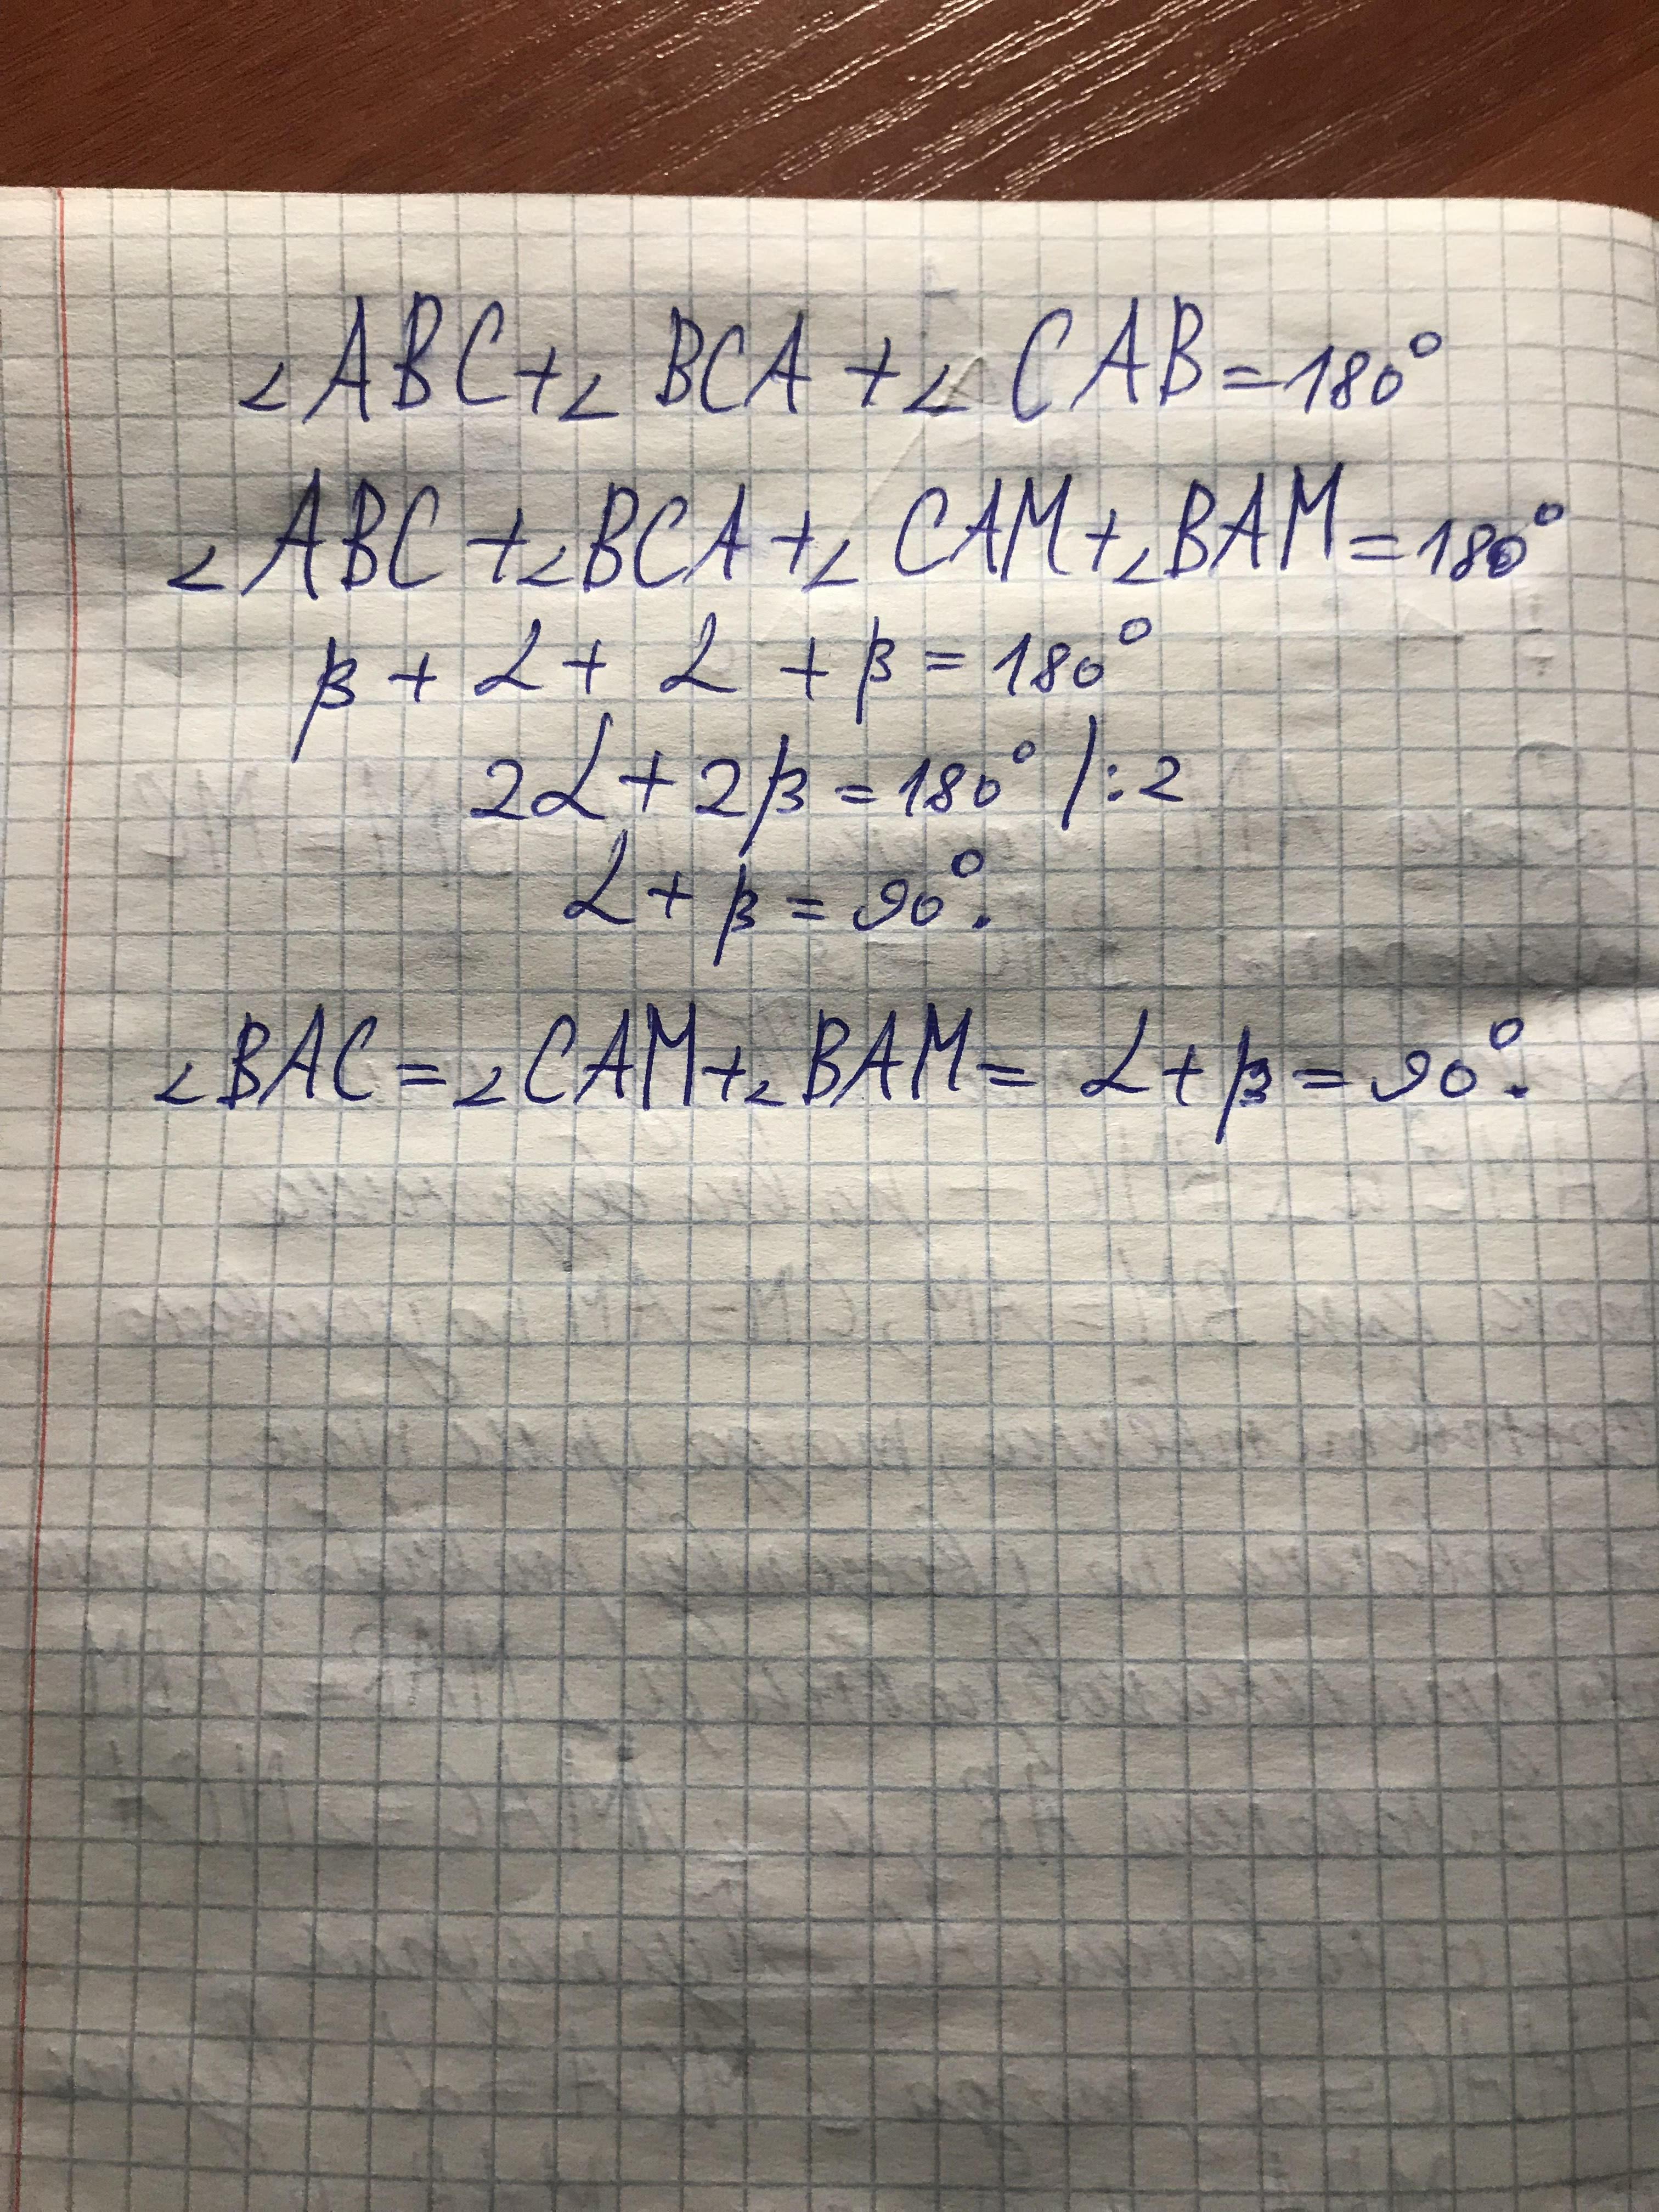 ∠ABC+∠BCA+∠CAB=180°
∠ABC+∠BCA+∠CAM+∠BAM=180°
β+α+α+β=180°
2α+2β=180° |:2
α+β=90°.
∠BAC=∠CAM+∠BAM=α+β=90°.